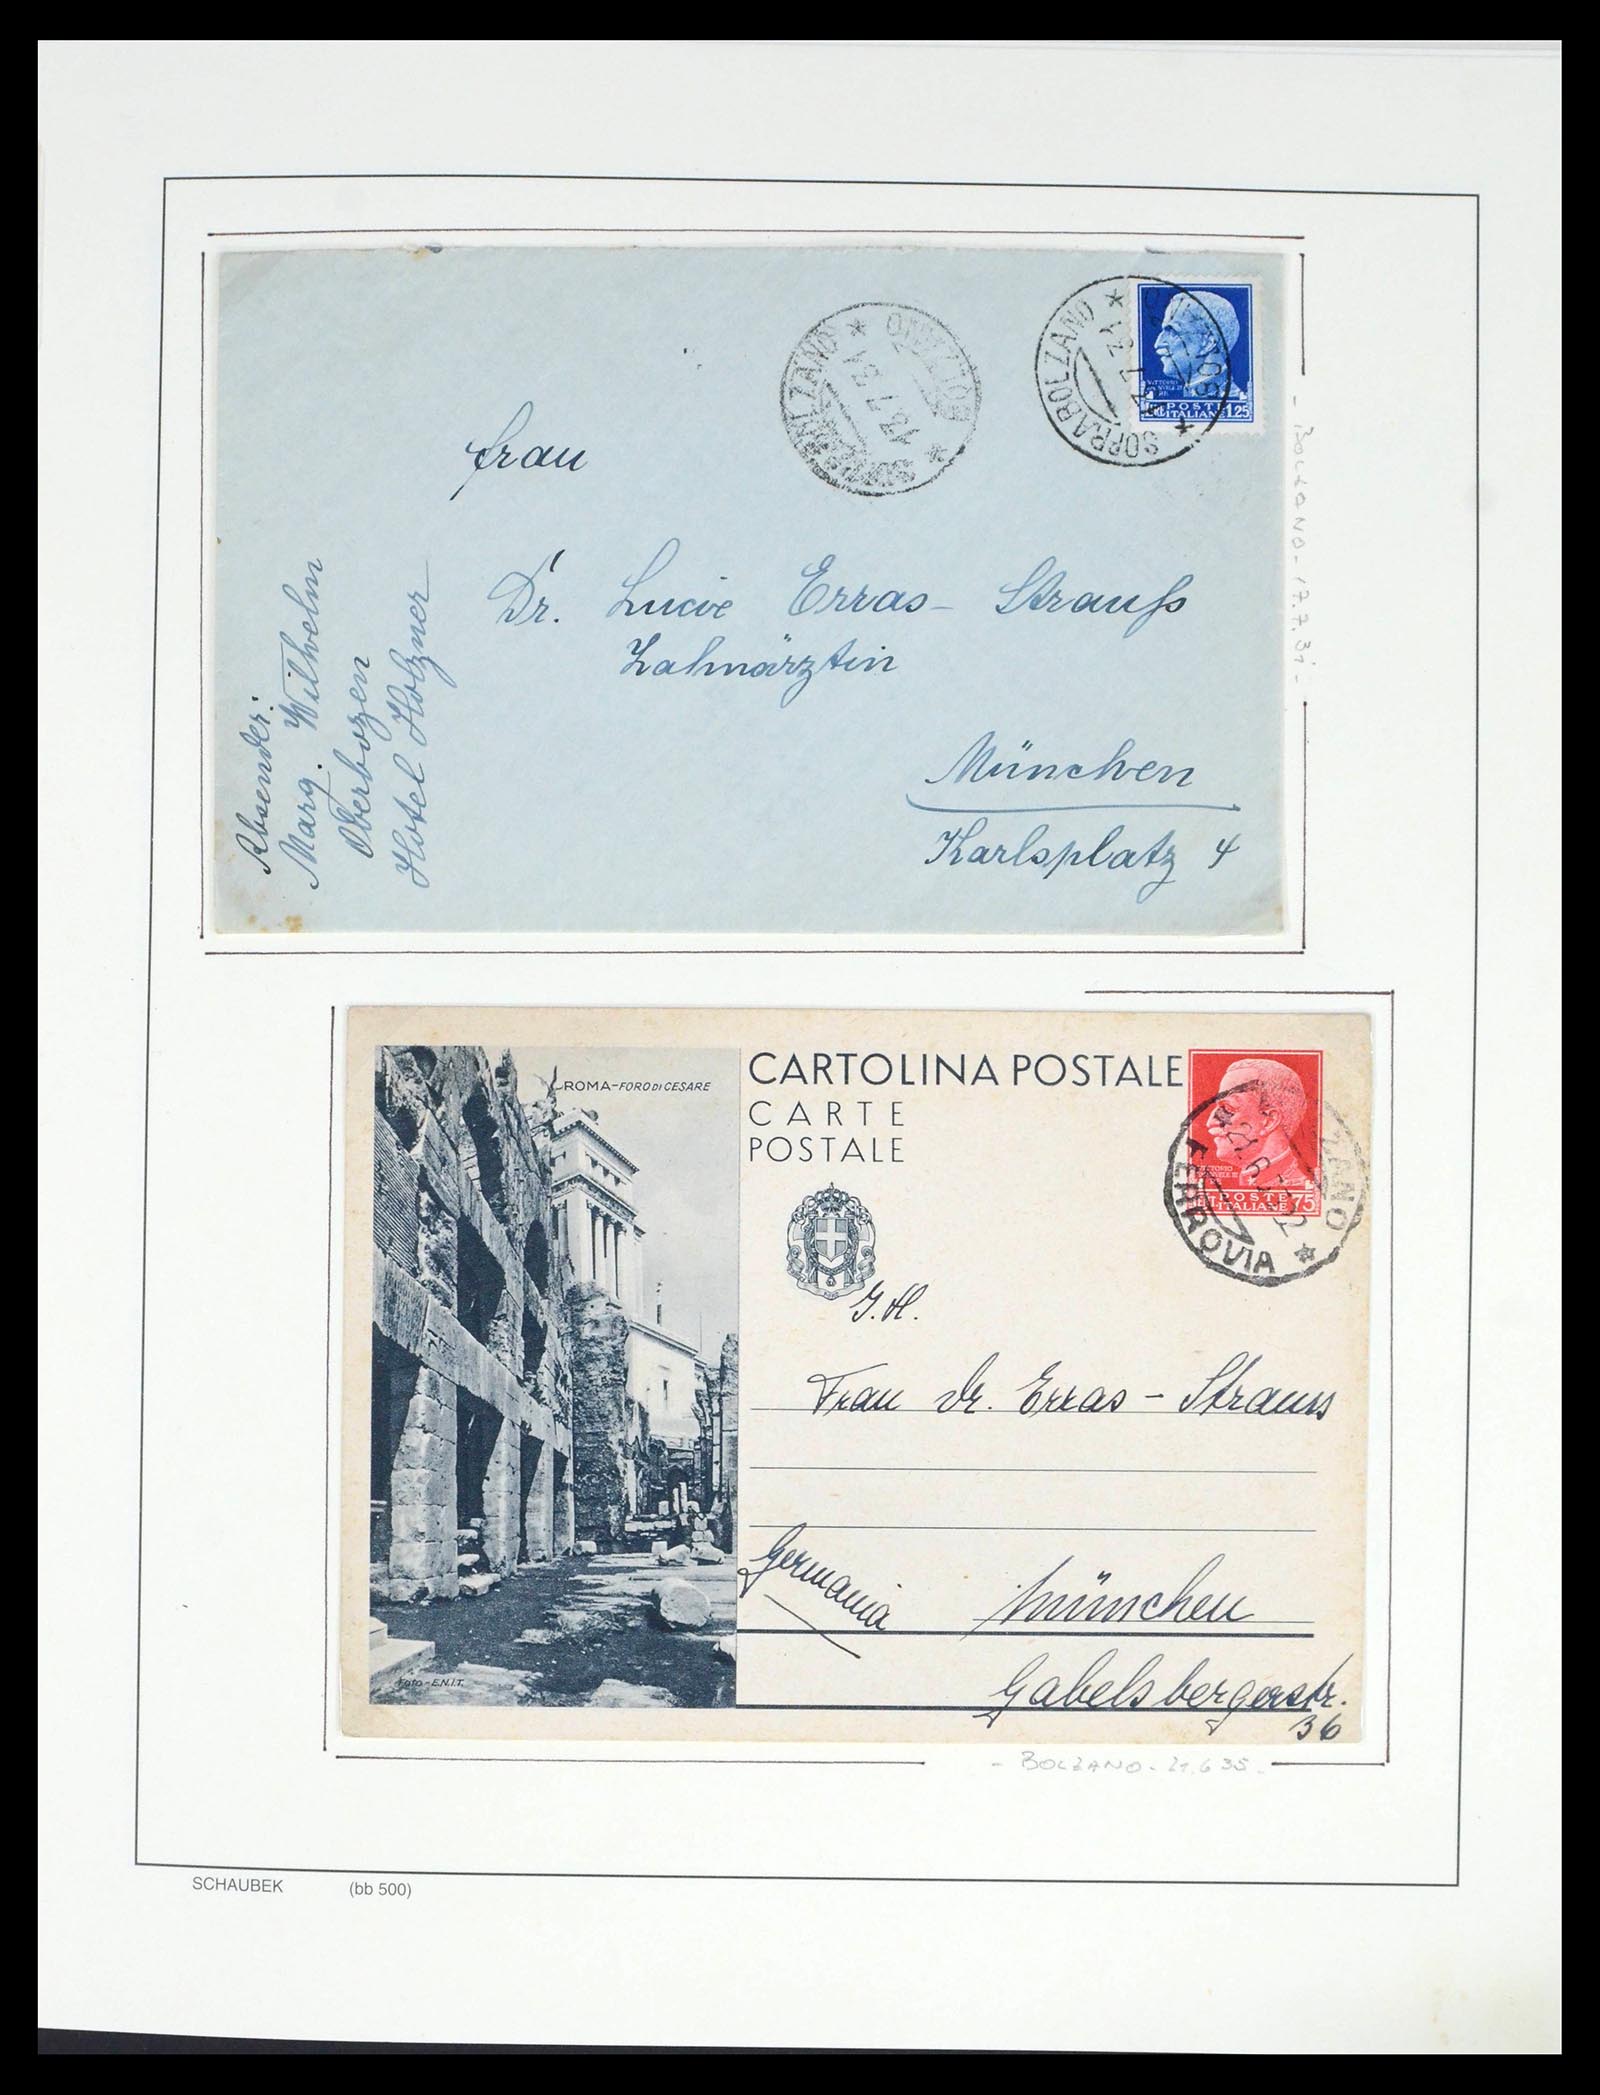 SOPRABOLZANO
BOLZANO
17.7.31
SOPRABOLZANO
BOLZANO
17.7.31
VITTORIO
POSTE
ITALIANE
1.25
Frau
Dr. Lucie Erras-Strauß
Zahnärztin
München
Karlsplatz 4
Absender:
Marg. Wilhelm
Oberbozen
Hotel Holzner
- BOLZANO - 17.7.31 -
ROMA-FORO DI CESARE
Foto-E.N.I.T.
CARTOLINA POSTALE
CARTE
POSTALE
VITTORIO
POSTE
ITALIANE
75
FERROVIA
Frau Dr. Erras-Strauss
Germania
München
Gabelsbergerstr.
36
- BOLZANO - 21.6.35 -
SCHAUBEK (bb 500)